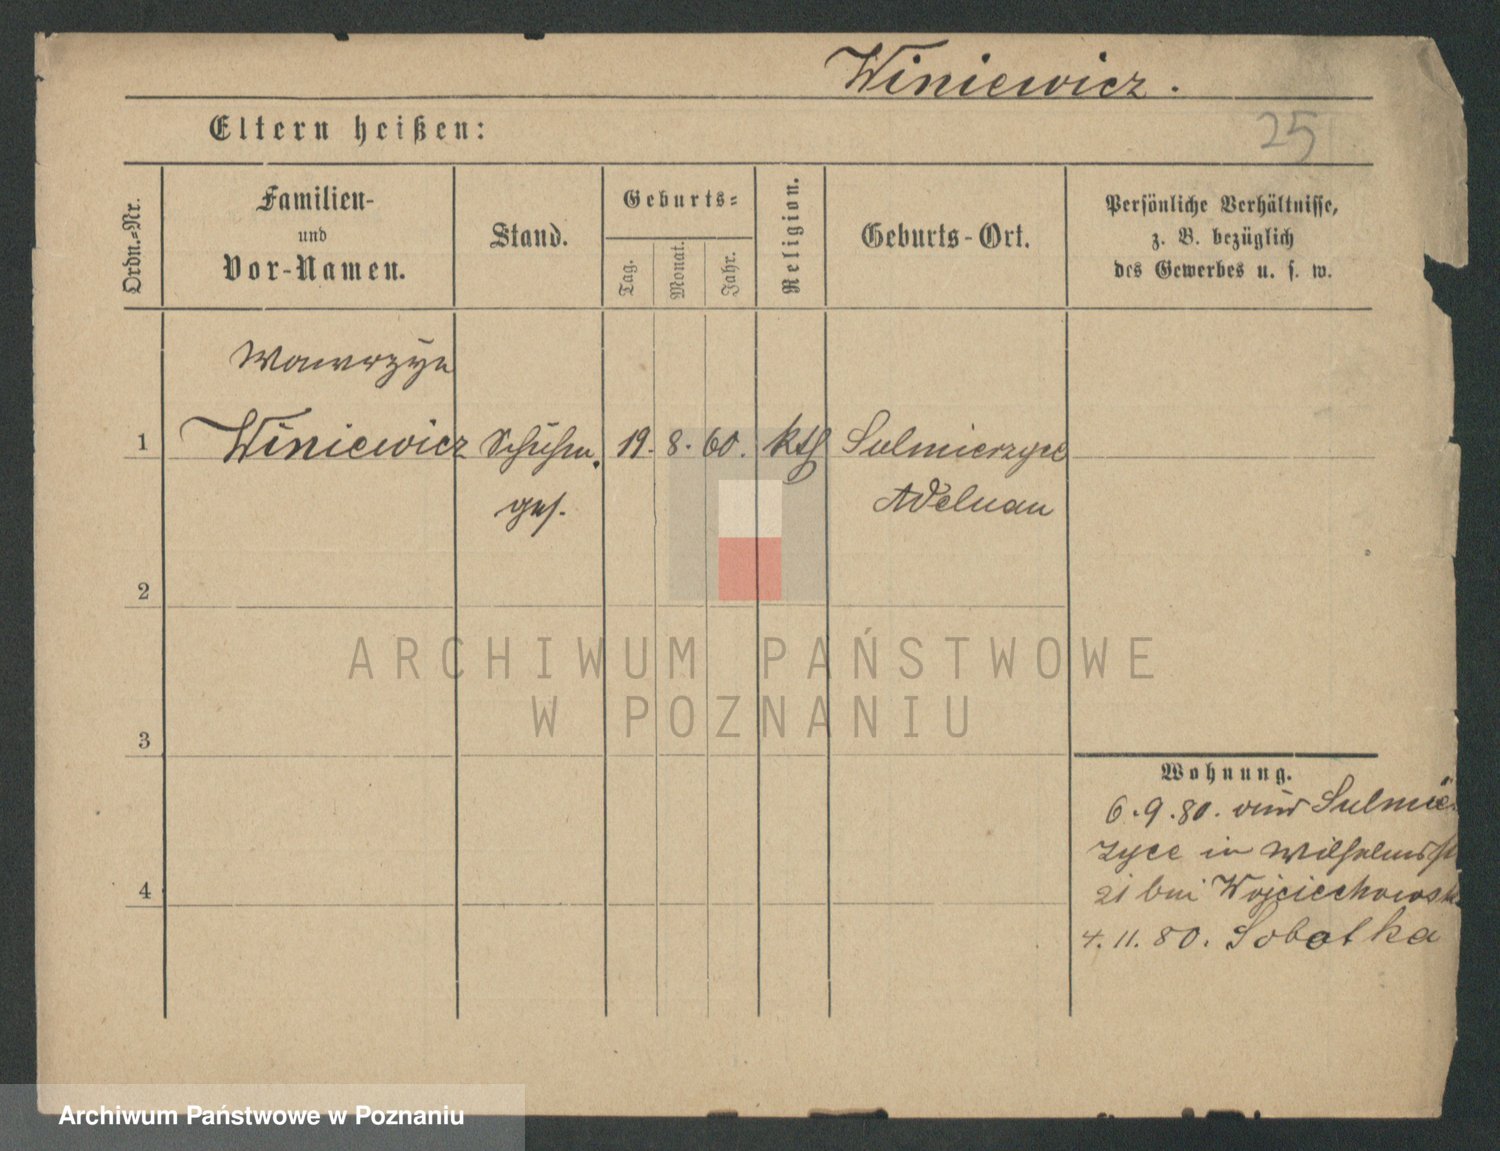 Winiewicz.
25
Eltern heißen:
Ordn.=Nr.
Familien-
und
Vor-Namen.
Stand.
Geburts=
Tag.
Monat.
Jahr.
Religion.
Geburts-Ort.
Persönliche Verhältnisse,
z. B. bezüglich
des Gewerbes u. s. w.
Wawrzyn
1 Winiewicz Schuhm. 19. 8. 60. kth Sulmierzyce
ges. Adelnau
2
ARCHIWUM PAŃSTWOWE
W POZNANIU
3
Wohnung.
6.9.80. aus Sulmier
zyce in Wilhelmsst
21 bei Wojciechowsk
4
4.11.80. Sobotka
Archiwum Państwowe w Poznaniu